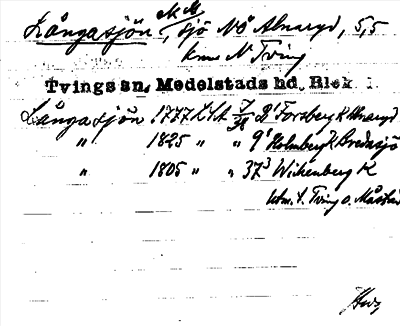 Långasjön, sjö NÖ Alnaryd, 5,5
km N Tving
Tvings sn, Medelstads hd, Blek.
Långasjön 1777 LSA Forsberg K Alnaryd
" 1825 " " 9¹ Holmberg K Bredasjö
" 1805 " " 37³ Wikenberg K
utm. t. Tving o.